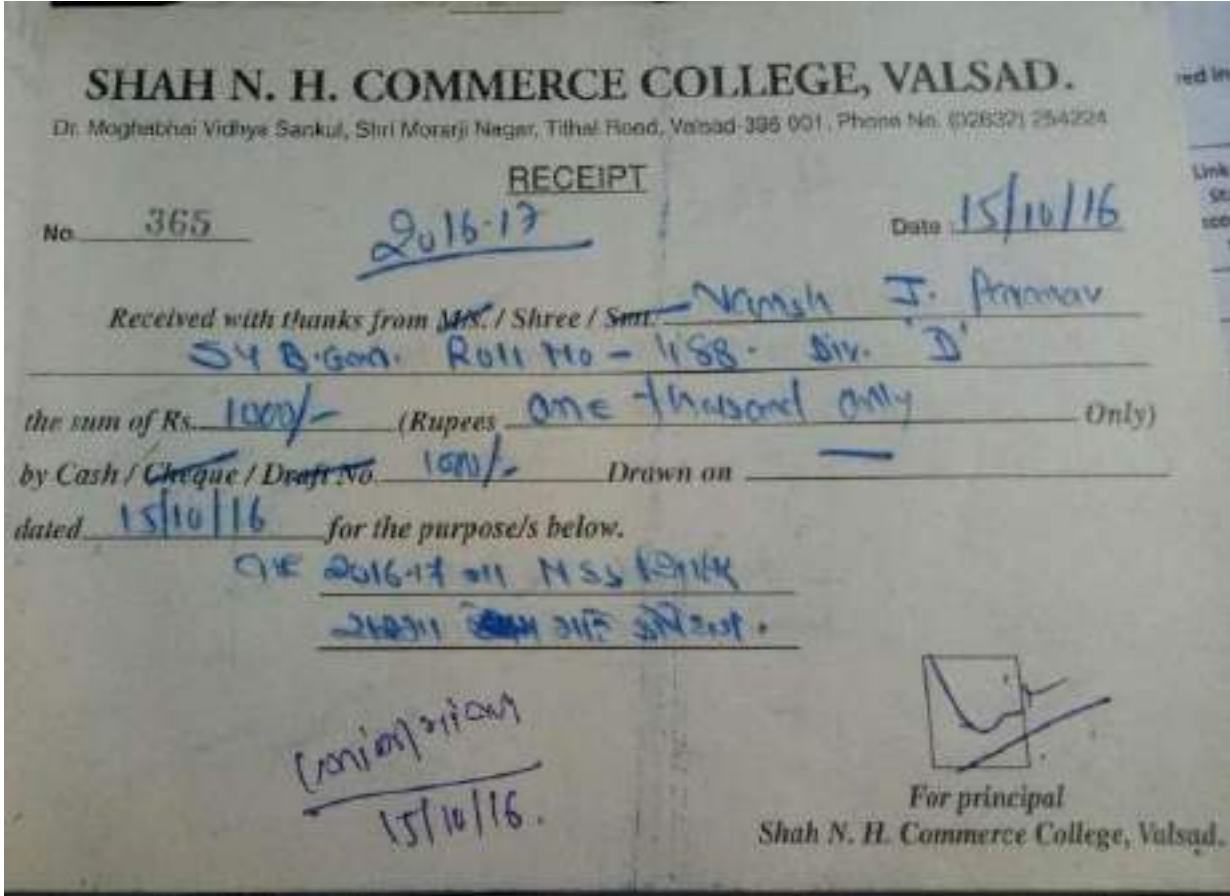 SHAH N. H. COMMERCE COLLEGE, VALSAD.
Dr. Moghabhai Vidhya Sankul, Shri Morarji Nagar, Tithal Road, Valsad-396 001. Phone No. (02632) 254224
RECEIPT
No. 365 2016-17 Date : 15/10/16
Received with thanks from M/s. / Shree / Smt. Vansh J.
S Y B.Com. Roll No - 1188. Div. 'D'
the sum of Rs. 1000/- (Rupees one thousand only Only)
by Cash / Cheque / Draft No. 1000/- Drawn on —
dated 15/10/16 for the purpose/s below.
2016-17 ના NSS
15/10/16.
For principal
Shah N. H. Commerce College, Valsad.
red in
Link